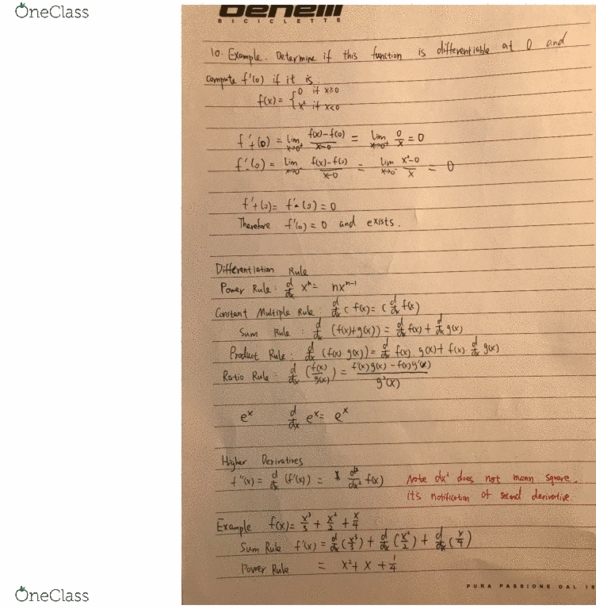 OneClass
Benelli
BICICLETTE
10. Example. Determine if this function is differentiable at 0 and
compute f'(0) if it is.
f(x) = { 0 if x≥0
x² if x<0
f'+(0) = lim x→0+ f(x)-f(0)/x-0 = lim x→0+ 0/x = 0
f'-(0) = lim x→0- f(x)-f(0)/x-0 = lim x→0- x²-0/x = 0
f'+(0) = f'-(0) = 0
Therefore f'(0) = 0 and exists.
Differentiation Rule
Power Rule : d/dx xⁿ = nxⁿ⁻¹
Constant Multiple Rule d/dx c f(x) = c d/dx f(x)
Sum Rule : d/dx (f(x)+g(x)) = d/dx f(x) + d/dx g(x)
Product Rule : d/dx (f(x) g(x)) = d/dx f(x) . g(x) + f(x) d/dx g(x)
Ratio Rule : d/dx (f(x)/g(x)) = f'(x)g(x) - f(x)g'(x)/g²(x)
eˣ d/dx eˣ = eˣ
Higher Derivatives
f''(x) = d/dx (f'(x)) = d²/dx² f(x) Note dx² does not mean square.
its notification of second derivative
Example f(x) = x³/3 + x²/2 + x/4
Sum Rule f'(x) = d/dx (x³/3) + d/dx (x²/2) + d/dx (x/4)
Power Rule = x² + x + 1/4
PURA PASSIONE DAL 19
OneClass